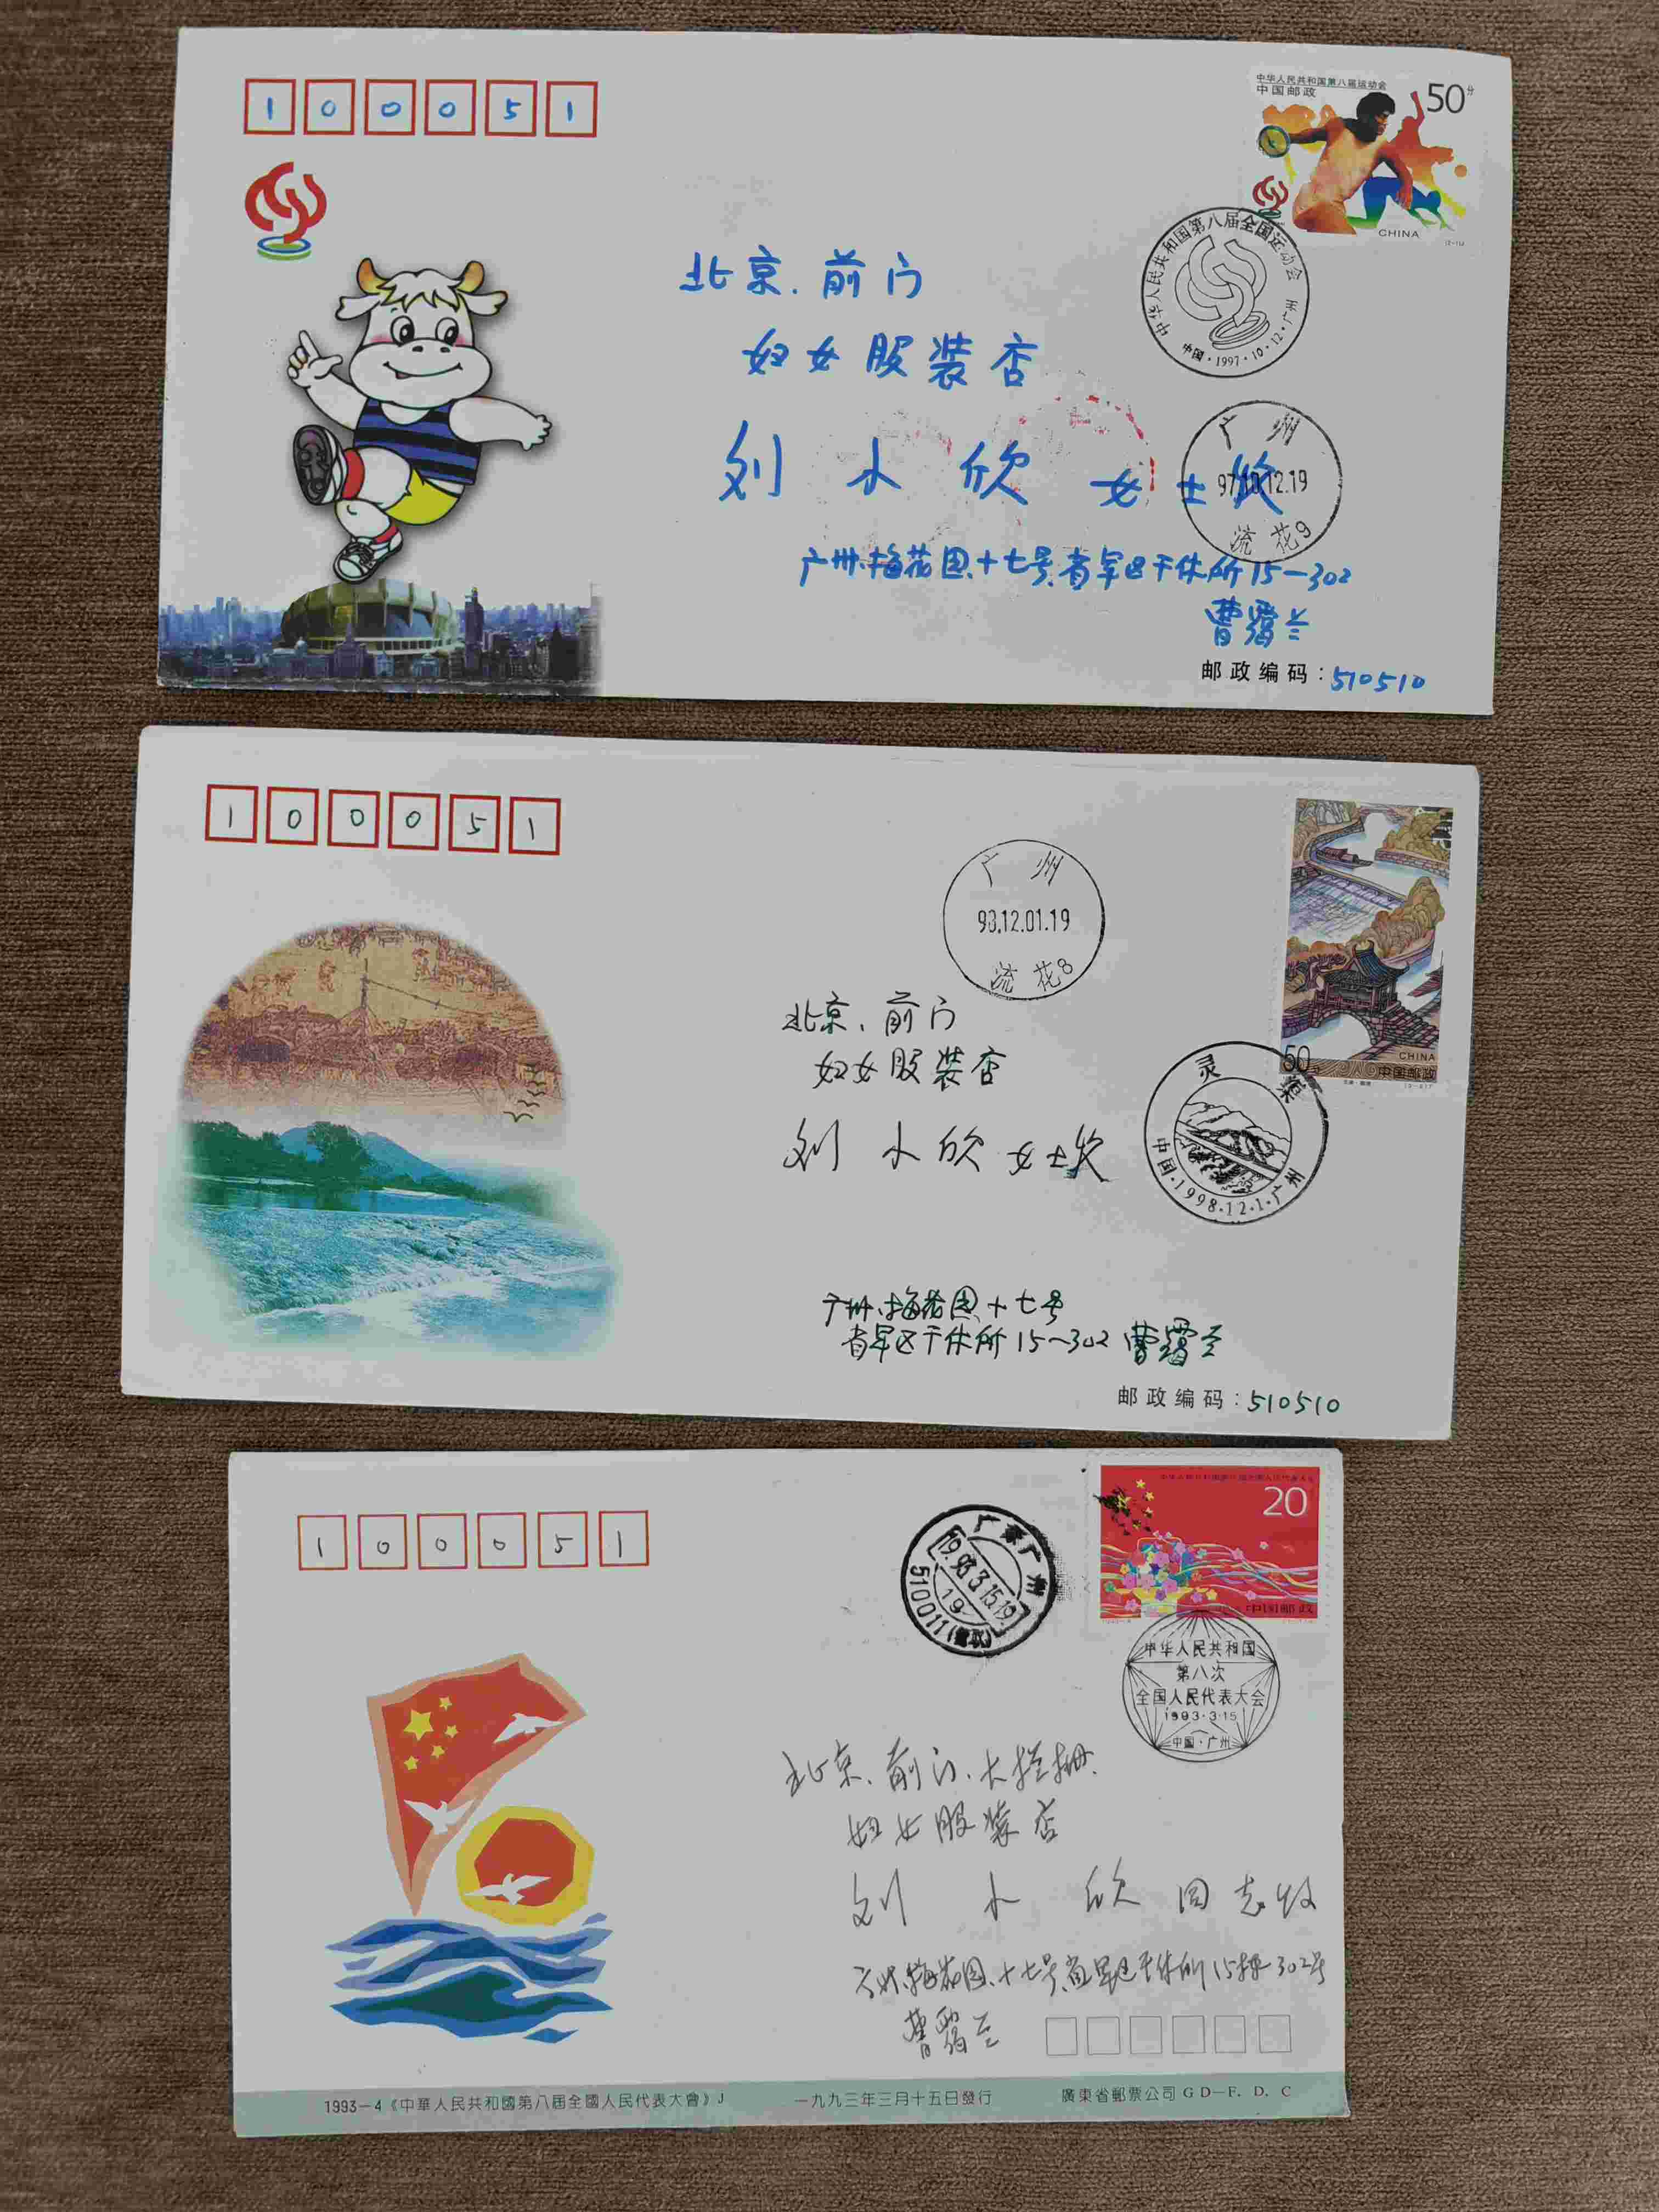 1 0 0 0 5 1
中华人民共和国第八届运动会
中国邮政
50分
CHINA
中华人民共和国第八届全国运动会
中国·1997·10·12·广州
北京.前门
妇女服装店
刘小欣 女士收
广州
97.10.12.19
流花9
广州.梅花园.十七号.省军区干休所15-302
曹霭兰
邮政编码：510510
1 0 0 0 5 1
广州
98.12.01.19
流花8
CHINA
50分
中国邮政
灵渠
中国·1998·12·1·广州
北京、前门
妇女服装店
刘小欣 女士收
广州.梅花园.十七号
省军区干休所15-302 曹霭兰
邮政编码：510510
1 0 0 0 5 1
20
中国邮政
广东广州
19.93.3.15.19
19
510011
中华人民共和国
第八次
全国人民代表大会
1993·3·15
中国·广州
北京、前门、大栏栅.
妇女服装店
刘小欣 同志收
广州.梅花园、十七号.省军区干休所15栋302号
曹霭兰
1993-4《中華人民共和國第八屆全國人民代表大會》J 一九九三年三月十五日發行 廣東省郵票公司 GD-F.D.C